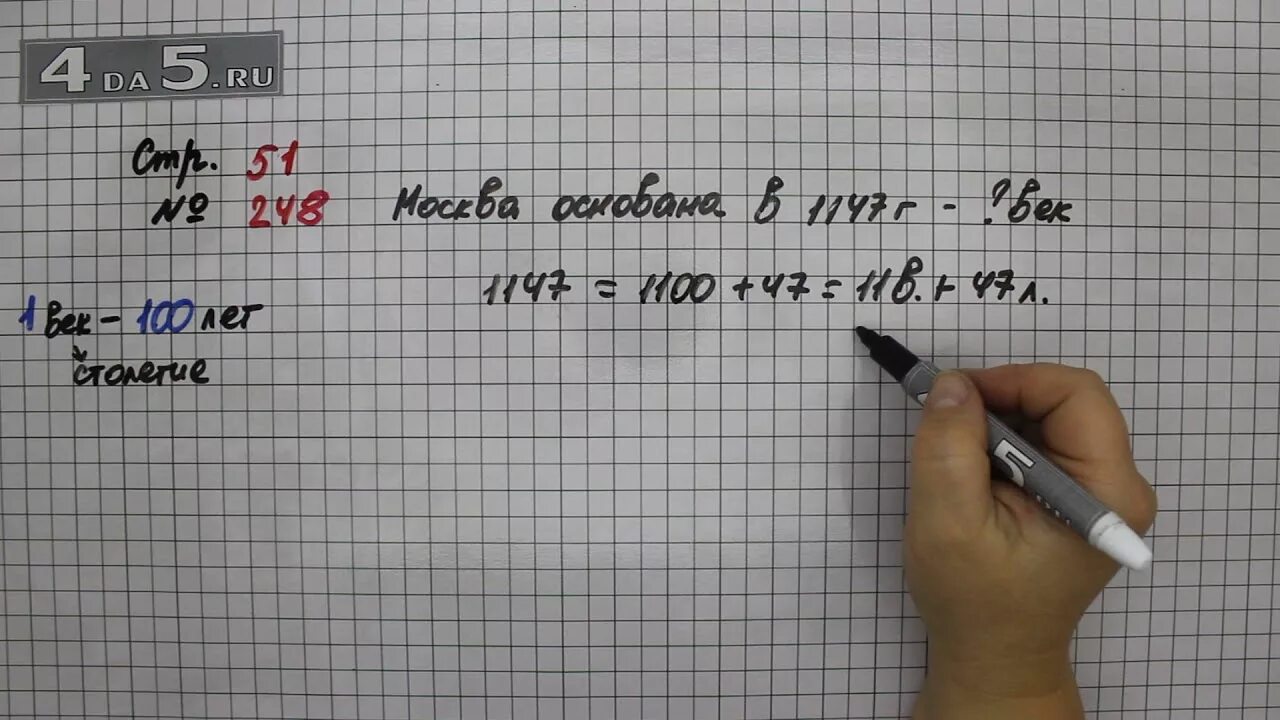 4DA5.RU
Стр. 51
№ 248
Москва основана в 1147 г - ? век
1147 = 1100 + 47 = 11 в. + 47 л.
1 век - 100 лет
столетие
5